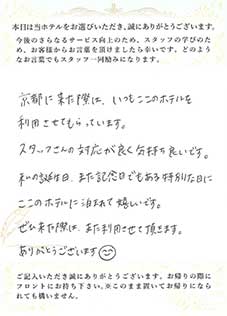 本日は当ホテルをお選びいただき、誠にありがとうございます。
今後のさらなるサービス向上のため、スタッフの学びのため、お客様からお言葉を頂けましたら幸いです。どのようなお言葉でもスタッフ一同励みになります。
京都に来た際は、いつもここのホテルを
利用させてもらっています。
スタッフさんの対応が良く気持ち良いです。
私の誕生日、また記念日でもある特別な日に
ここのホテルに泊まれて嬉しいです。
ぜひ来た際は、また利用させて頂きます。
ありがとうございます
ご記入いただき誠にありがとうございます。お帰りの際に
フロントにお持ち下さい。※このまま置いてお帰りになら
れても構いません。